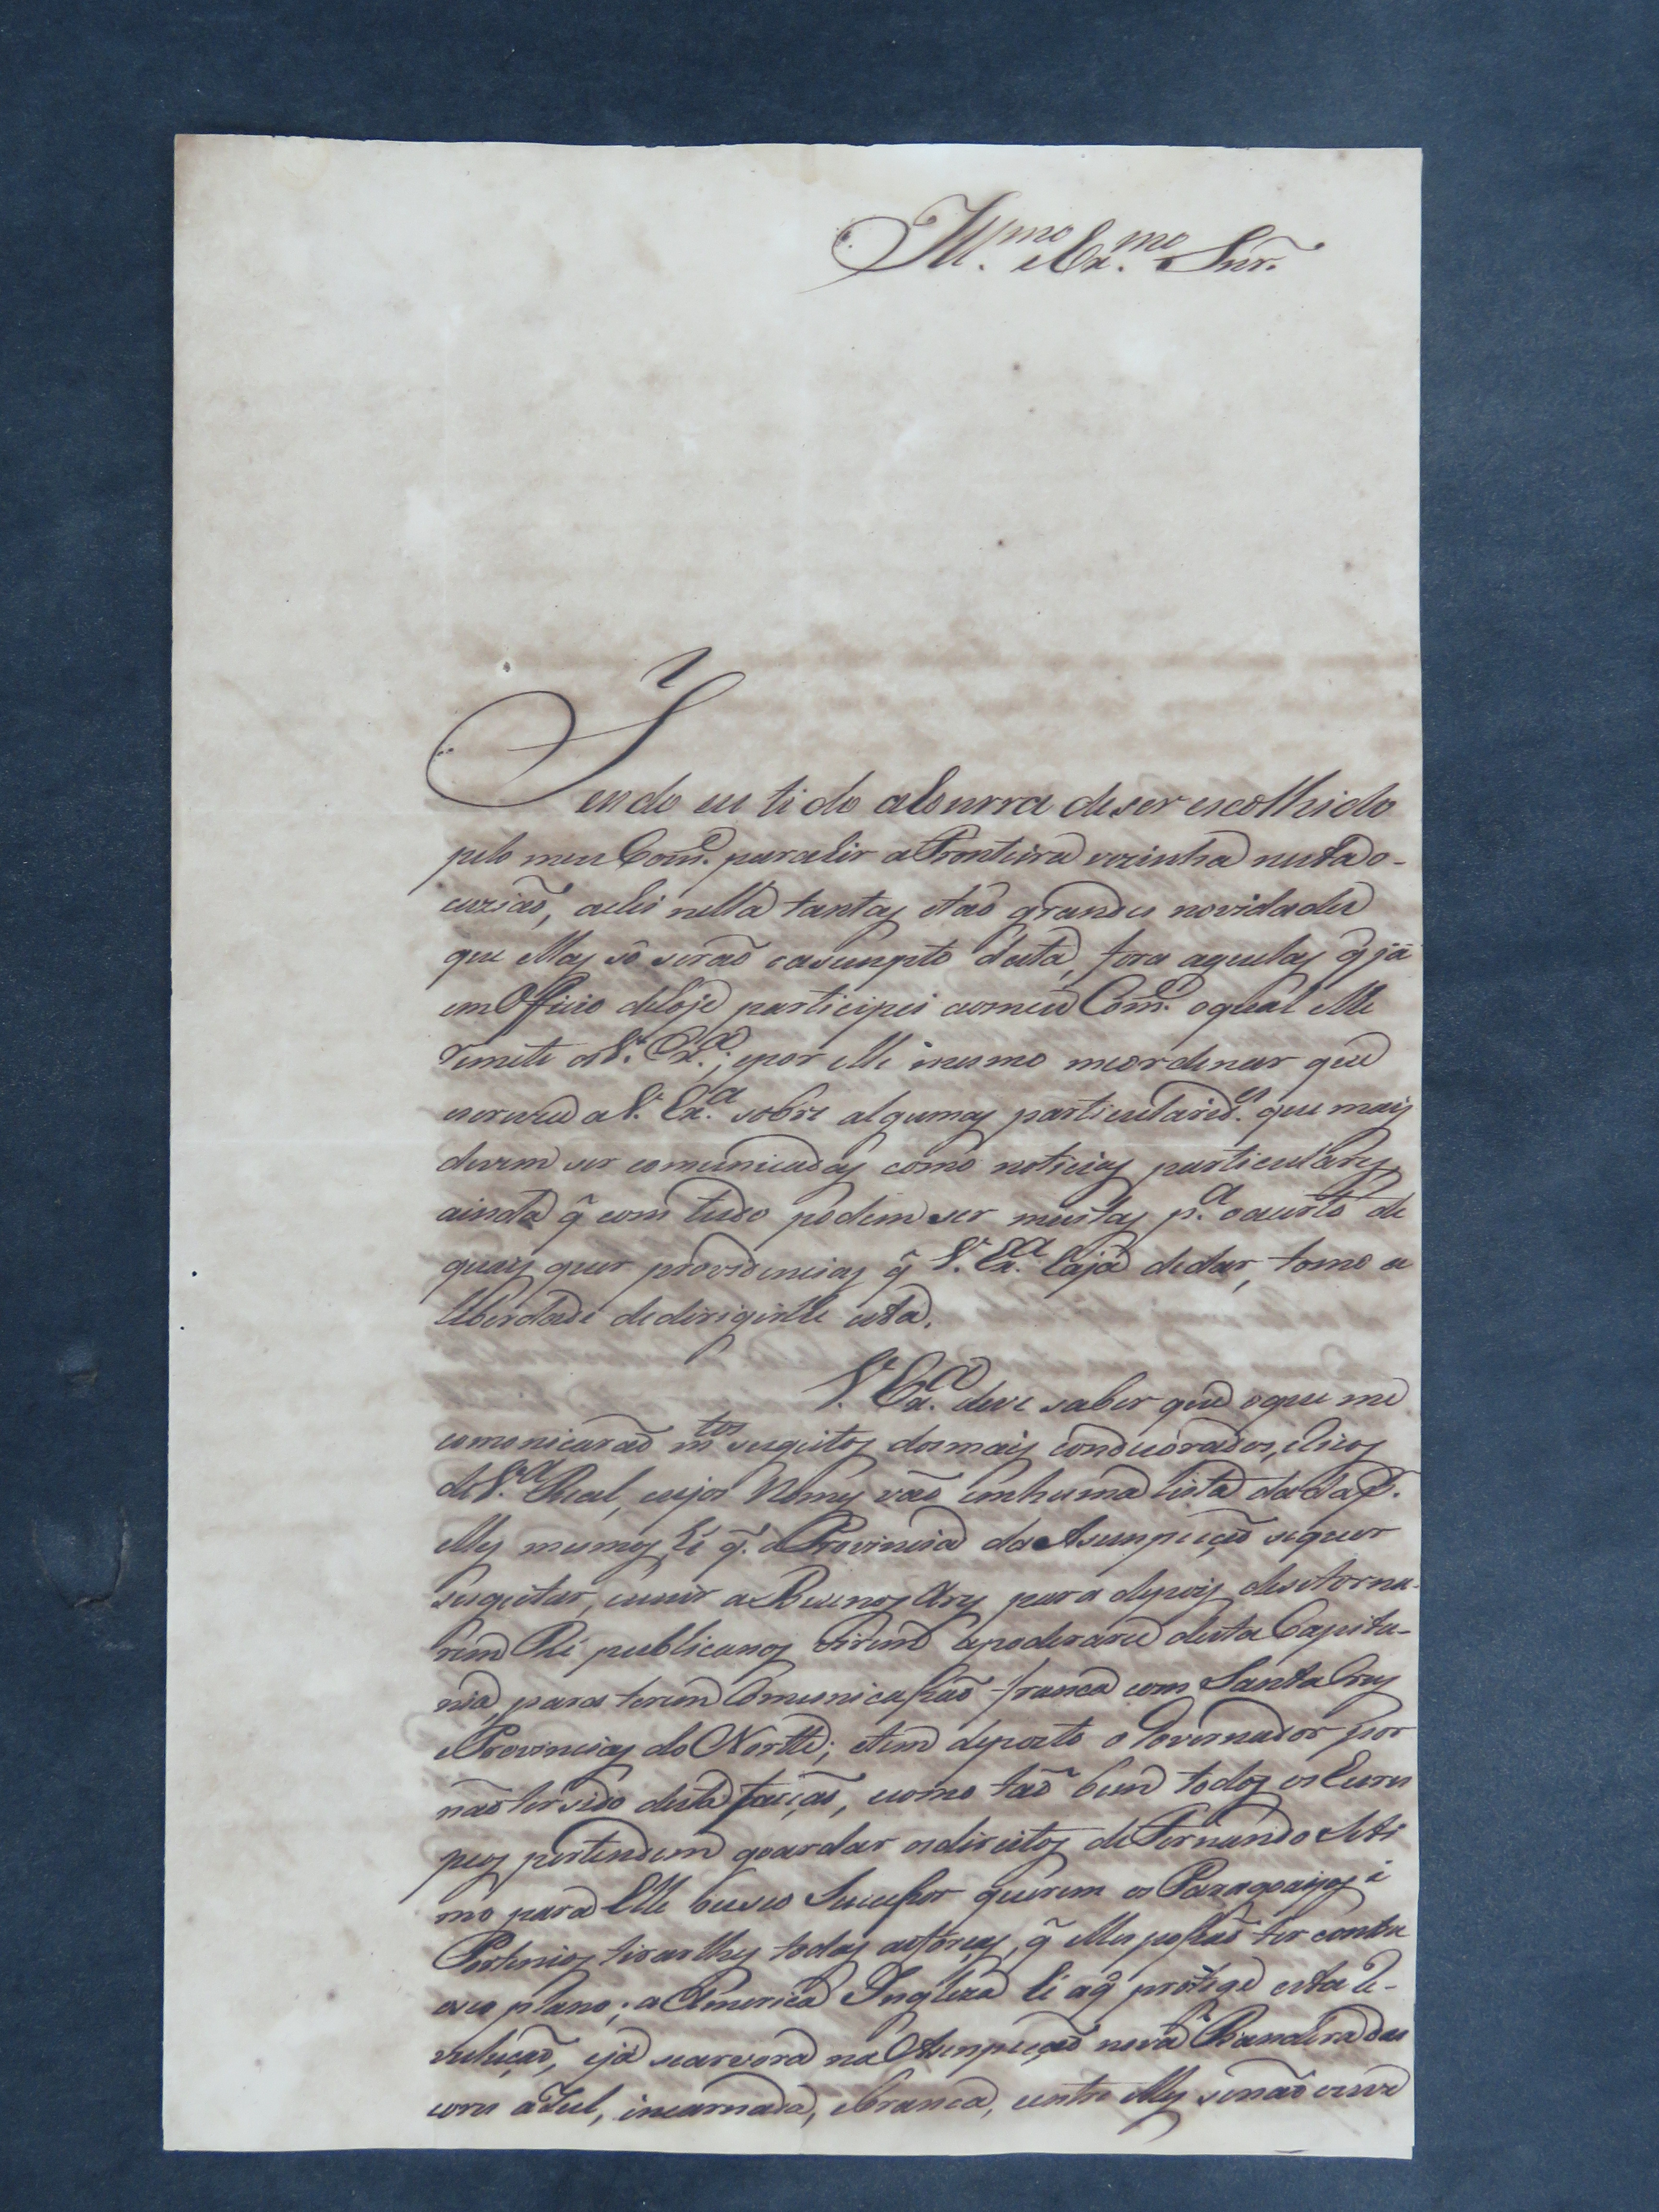 Ill.mo e Ex.mo Snr.
Tendo eu tido a honrra de ser escolhido
pelo meu Com.e para hir a Fronteira vezinha nesta o-
cuziaõ, achei nella tantas e taõ grandes novidades
que ellas só seraõ o asumpto desta, fora aquelas q̃ já
em Officio de hoje participei ao meu Com.e o qual elle
remete a V. Ex.a; e por elle mesmo me ordenar que
escreva a V. Ex.a sobre algumas particularid.es que mais
devem ser comunicadas como noticias particulares,
ainda q̃ com tudo podem ser muitas p.a o acerto de
quais quer providencias q̃ V. Ex.a haja de dar, tomo a
liberdade de dirigirlhe esta.
V. Ex.a deve saber que o que me
comonicaraõ m.tos sugeitos dos mais condecorados, e ricos
de V.a Real, cujos Nomes vaõ em huma lista dada p.
elles mesmos, hé q̃. a Provincia da Asumpçaõ se quer
sugeitar, e unir a Buenos Ayres para depois de se torna-
rem Republicanos virem apoderarse desta Capita-
nia, para terem Comunicassaõ franca com Santa Cruz
e Provincias do Nortte; e tem deposto o Governador por
naõ ter sido desta facçaõ, e como taõ bem todos os Euro
peos pertendem goardar os direitos de Fernando Seti
mo para Elle ou seo Sucessor querem os Paragoaijos e
Portenios tirarlhes todas as forças, q̃ elles possaõ ter contra
o seo plano; a America Ingleza hé a q̃ protege esta re-
vuluçaõ, e já se arvora na Asumpçaõ nova Bandeira das
cores azul, incarnada, e branca, e entre elles se naõ ouve